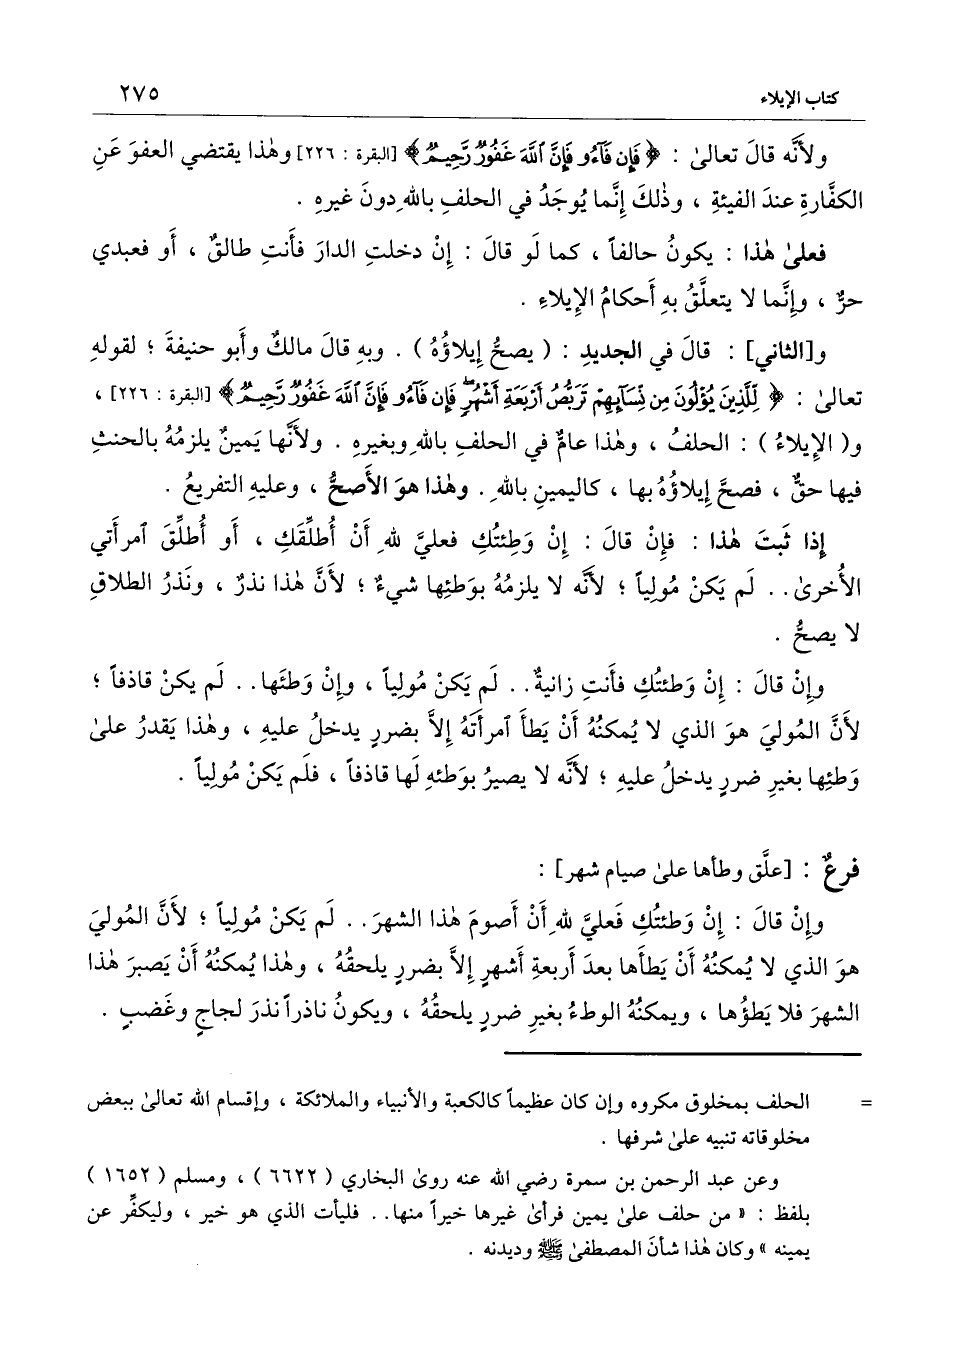 كتاب الإيلاء ٢٧٥
ولأنَّه قالَ تعالىٰ : ﴿ فَإِن فَآءُو فَإِنَّ ٱللَّهَ غَفُورٌ رَّحِيمٌ ﴾ [البقرة : ٢٢٦] وهٰذا يقتضي العفوَ عَنِ
الكفَّارةِ عندَ الفيئةِ ، وذٰلكَ إِنَّما يُوجَدُ في الحلفِ باللهِ دونَ غيرهِ .
فعلىٰ هٰذا : يكونُ حالفاً ، كما لَو قالَ : إِنْ دخلتِ الدارَ فأَنتِ طالقٌ ، أَو فعبدي
حرٌّ ، وإِنَّما لا يتعلَّقُ بهِ أَحكامُ الإِيلاءِ .
و[الثاني] : قالَ في الجديدِ : ( يصحُّ إِيلاؤُهُ ) . وبهِ قالَ مالكٌ وأَبو حنيفةَ ؛ لقولهِ
تعالىٰ : ﴿ لِّلَّذِينَ يُؤْلُونَ مِن نِّسَآئِهِمْ تَرَبُّصُ أَرْبَعَةِ أَشْهُرٍۖ فَإِن فَآءُو فَإِنَّ ٱللَّهَ غَفُورٌ رَّحِيمٌ ﴾ [البقرة : ٢٢٦] ،
و( الإِيلاءُ ) : الحلفُ ، وهٰذا عامٌّ في الحلفِ باللهِ وبغيرهِ . ولأَنَّها يَمينٌ يلزمُهُ بالحنثِ
فيها حقٌّ ، فصحَّ إِيلاؤُهُ بها ، كاليمينِ باللهِ . وهٰذا هوَ الأَصحُّ ، وعليهِ التفريعُ .
إِذا ثَبتَ هٰذا : فإِنْ قالَ : إِنْ وَطِئتُكِ فعليَّ للهِ أَنْ أُطلِّقَكِ ، أَو أُطلِّقَ ٱمرأَتي
الأُخرىٰ . . لَم يَكنْ مُولِياً ؛ لأَنَّه لا يلزمُهُ بوَطئِها شيءٌ ؛ لأَنَّ هٰذا نذرٌ ، ونَذرُ الطلاقِ
لا يصحُّ .
وإِنْ قالَ : إِنْ وَطئتُكِ فأَنتِ زانيةٌ . . لَم يَكنْ مُولِياً ، وإِنْ وَطئَها . . لَم يكنْ قاذفاً ؛
لأَنَّ المُوليَ هوَ الذي لا يُمكنُهُ أَنْ يَطأَ ٱمرأَتَهُ إِلاَّ بضررٍ يدخلُ عليهِ ، وهٰذا يَقدرُ علىٰ
وَطئِها بغيرِ ضررٍ يدخلُ عليهِ ؛ لأَنَّه لا يصيرُ بوَطئهِ لَها قاذفاً ، فلَم يَكنْ مُولِياً .
فرعٌ : [علَّق وطأها علىٰ صيام شهر] :
وإِنْ قالَ : إِنْ وَطئتُكِ فَعليَّ للهِ أَنْ أَصومَ هٰذا الشهرَ . . لَم يَكنْ مُولياً ؛ لأَنَّ المُوليَ
هوَ الذي لا يُمكنُهُ أَنْ يَطأَها بعدَ أَربعةِ أَشهرٍ إِلاَّ بضررٍ يلحقُهُ ، وهٰذا يُمكنُهُ أَنْ يَصبرَ هٰذا
الشهرَ فلا يَطؤُها ، ويمكنُهُ الوطءُ بغيرِ ضررٍ يلحقُهُ ، ويكونُ ناذراً نذرَ لجاجٍ وغَضبٍ .
= الحلف بمخلوق مكروه وإن كان عظيماً كالكعبة والأنبياء والملائكة ، وإقسام الله تعالىٰ ببعض
مخلوقاته تنبيه علىٰ شرفها .
وعن عبد الرحمن بن سمرة رضي الله عنه روىٰ البخاري ( ٦٦٢٢ ) ، ومسلم ( ١٦٥٢ )
بلفظ : « من حلف علىٰ يمين فرأىٰ غيرها خيراً منها . . فليأت الذي هو خير ، وليكفِّر عن
يمينه » وكان هٰذا شأنَ المصطفىٰ ﷺ وديدنه .